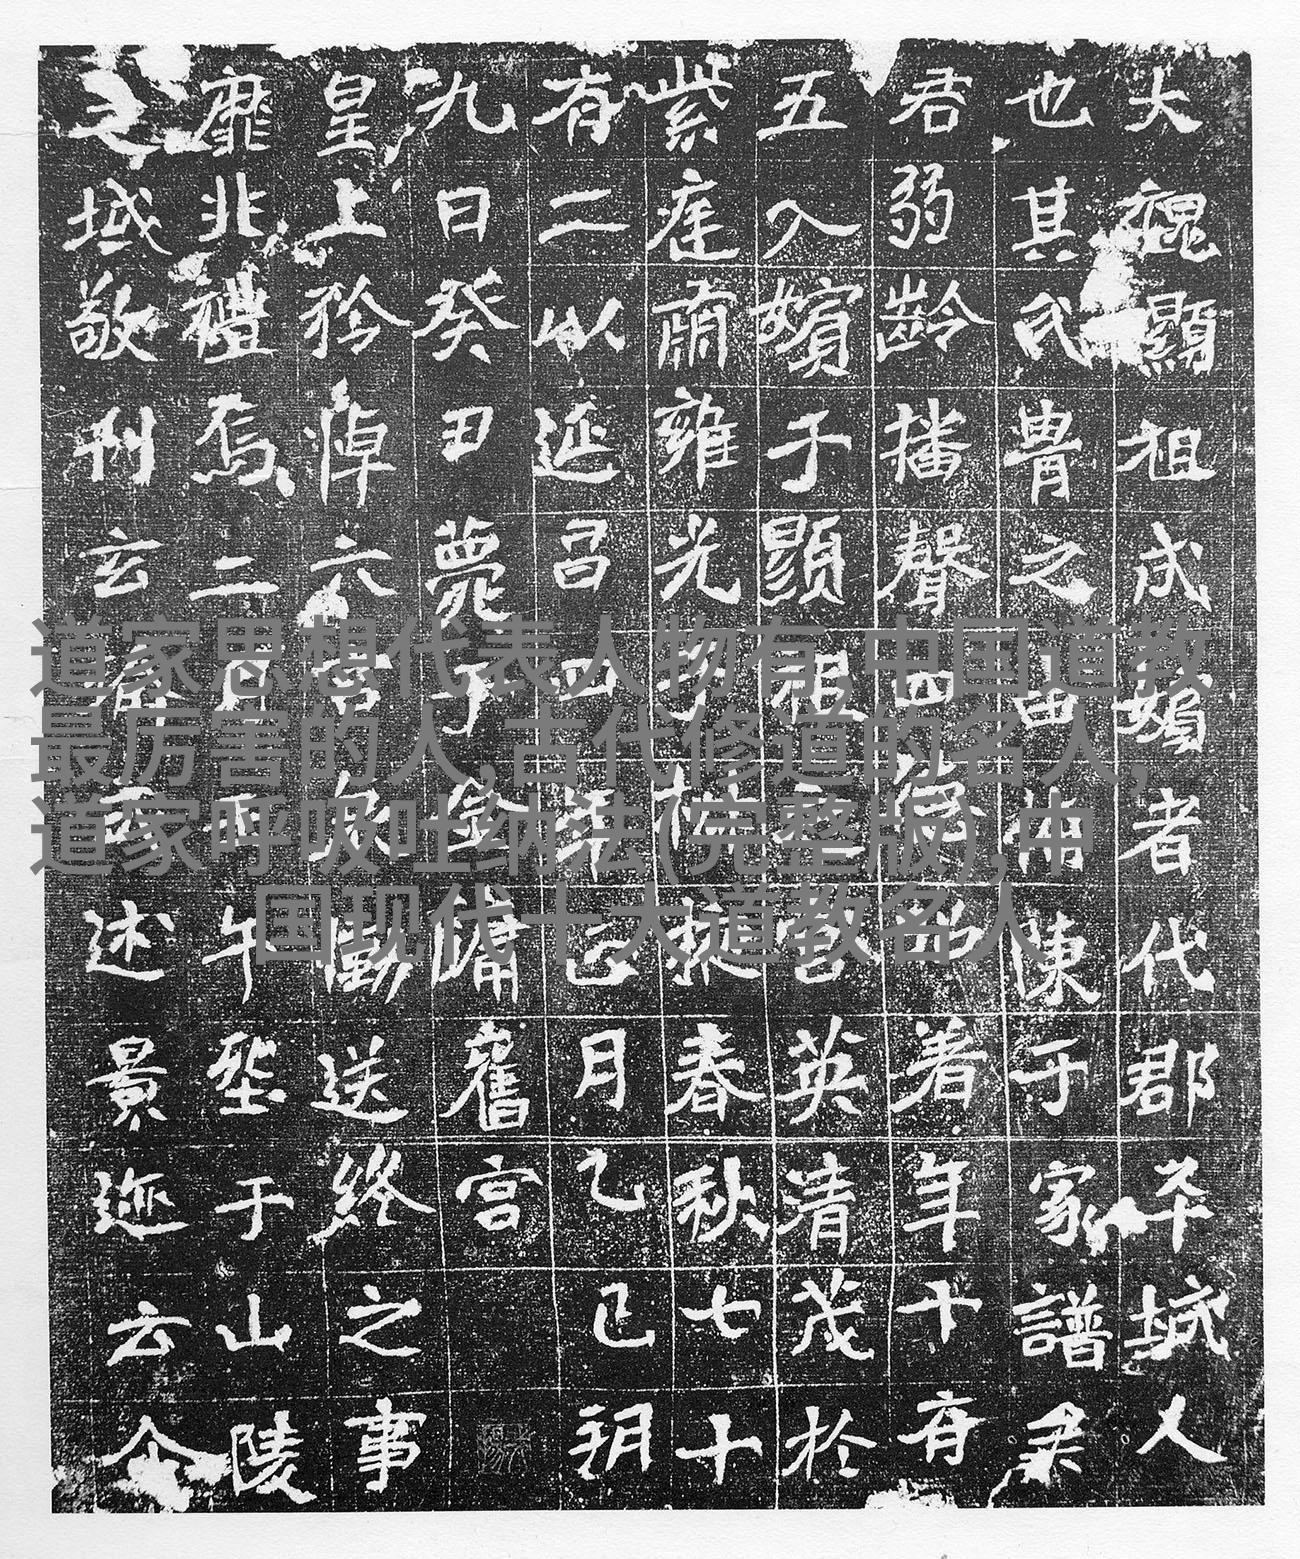 大魏顯祖成嬪者代郡平城人
也其氏冑之由備陳于家譜
君弱齡播聲四著年十有
五入嬪于顯祖英清茂於
紫庭肅雍光春秋七十
有二以延昌四年正月乙巳朔
九日癸丑薨于金墉舊宮
皇上矜悼六宮哀慟送終之事
靡非禮焉二月午于山陵
之域敬刊玄石述景迹云
道家思想代表人物有,中国道教
最厉害的人,古代修道的名人,
道家呼吸吐纳法(完整版),中
国现代十大道教名人